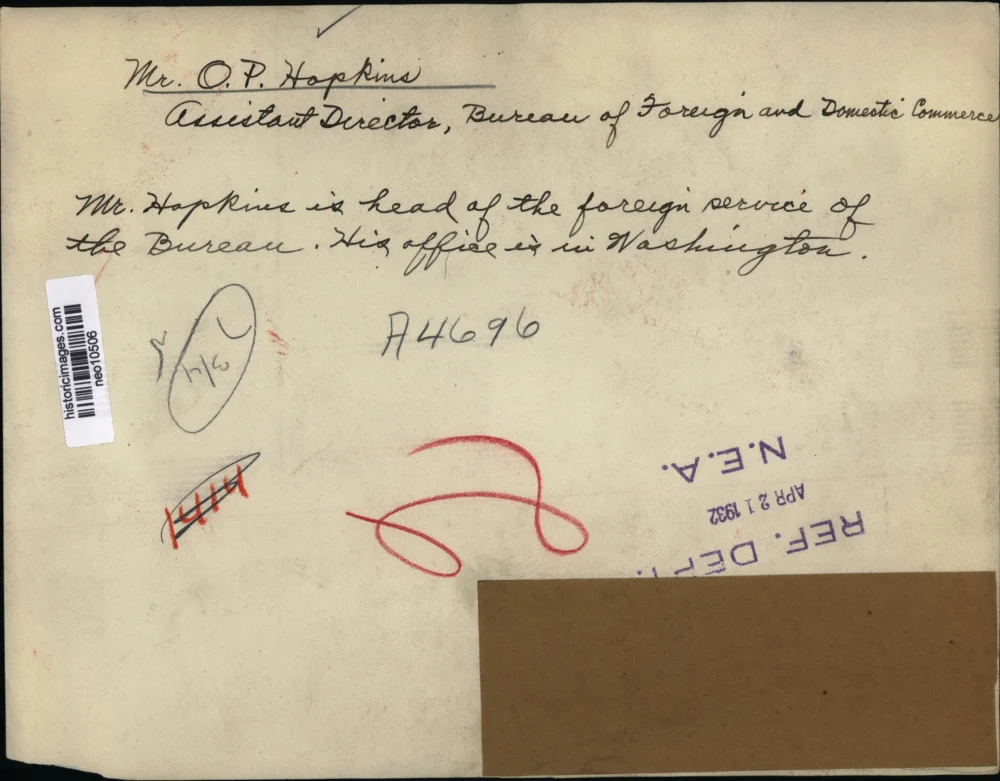 Mr. O.P. Hopkins
Assistant Director, Bureau of Foreign and Domestic Commerce
Mr. Hopkins is head of the foreign service of
the Bureau. His office is in Washington.
historicimages.com
neo10506
A4696
1414
REF. DEPT.
APR 21 1932
N.E.A.